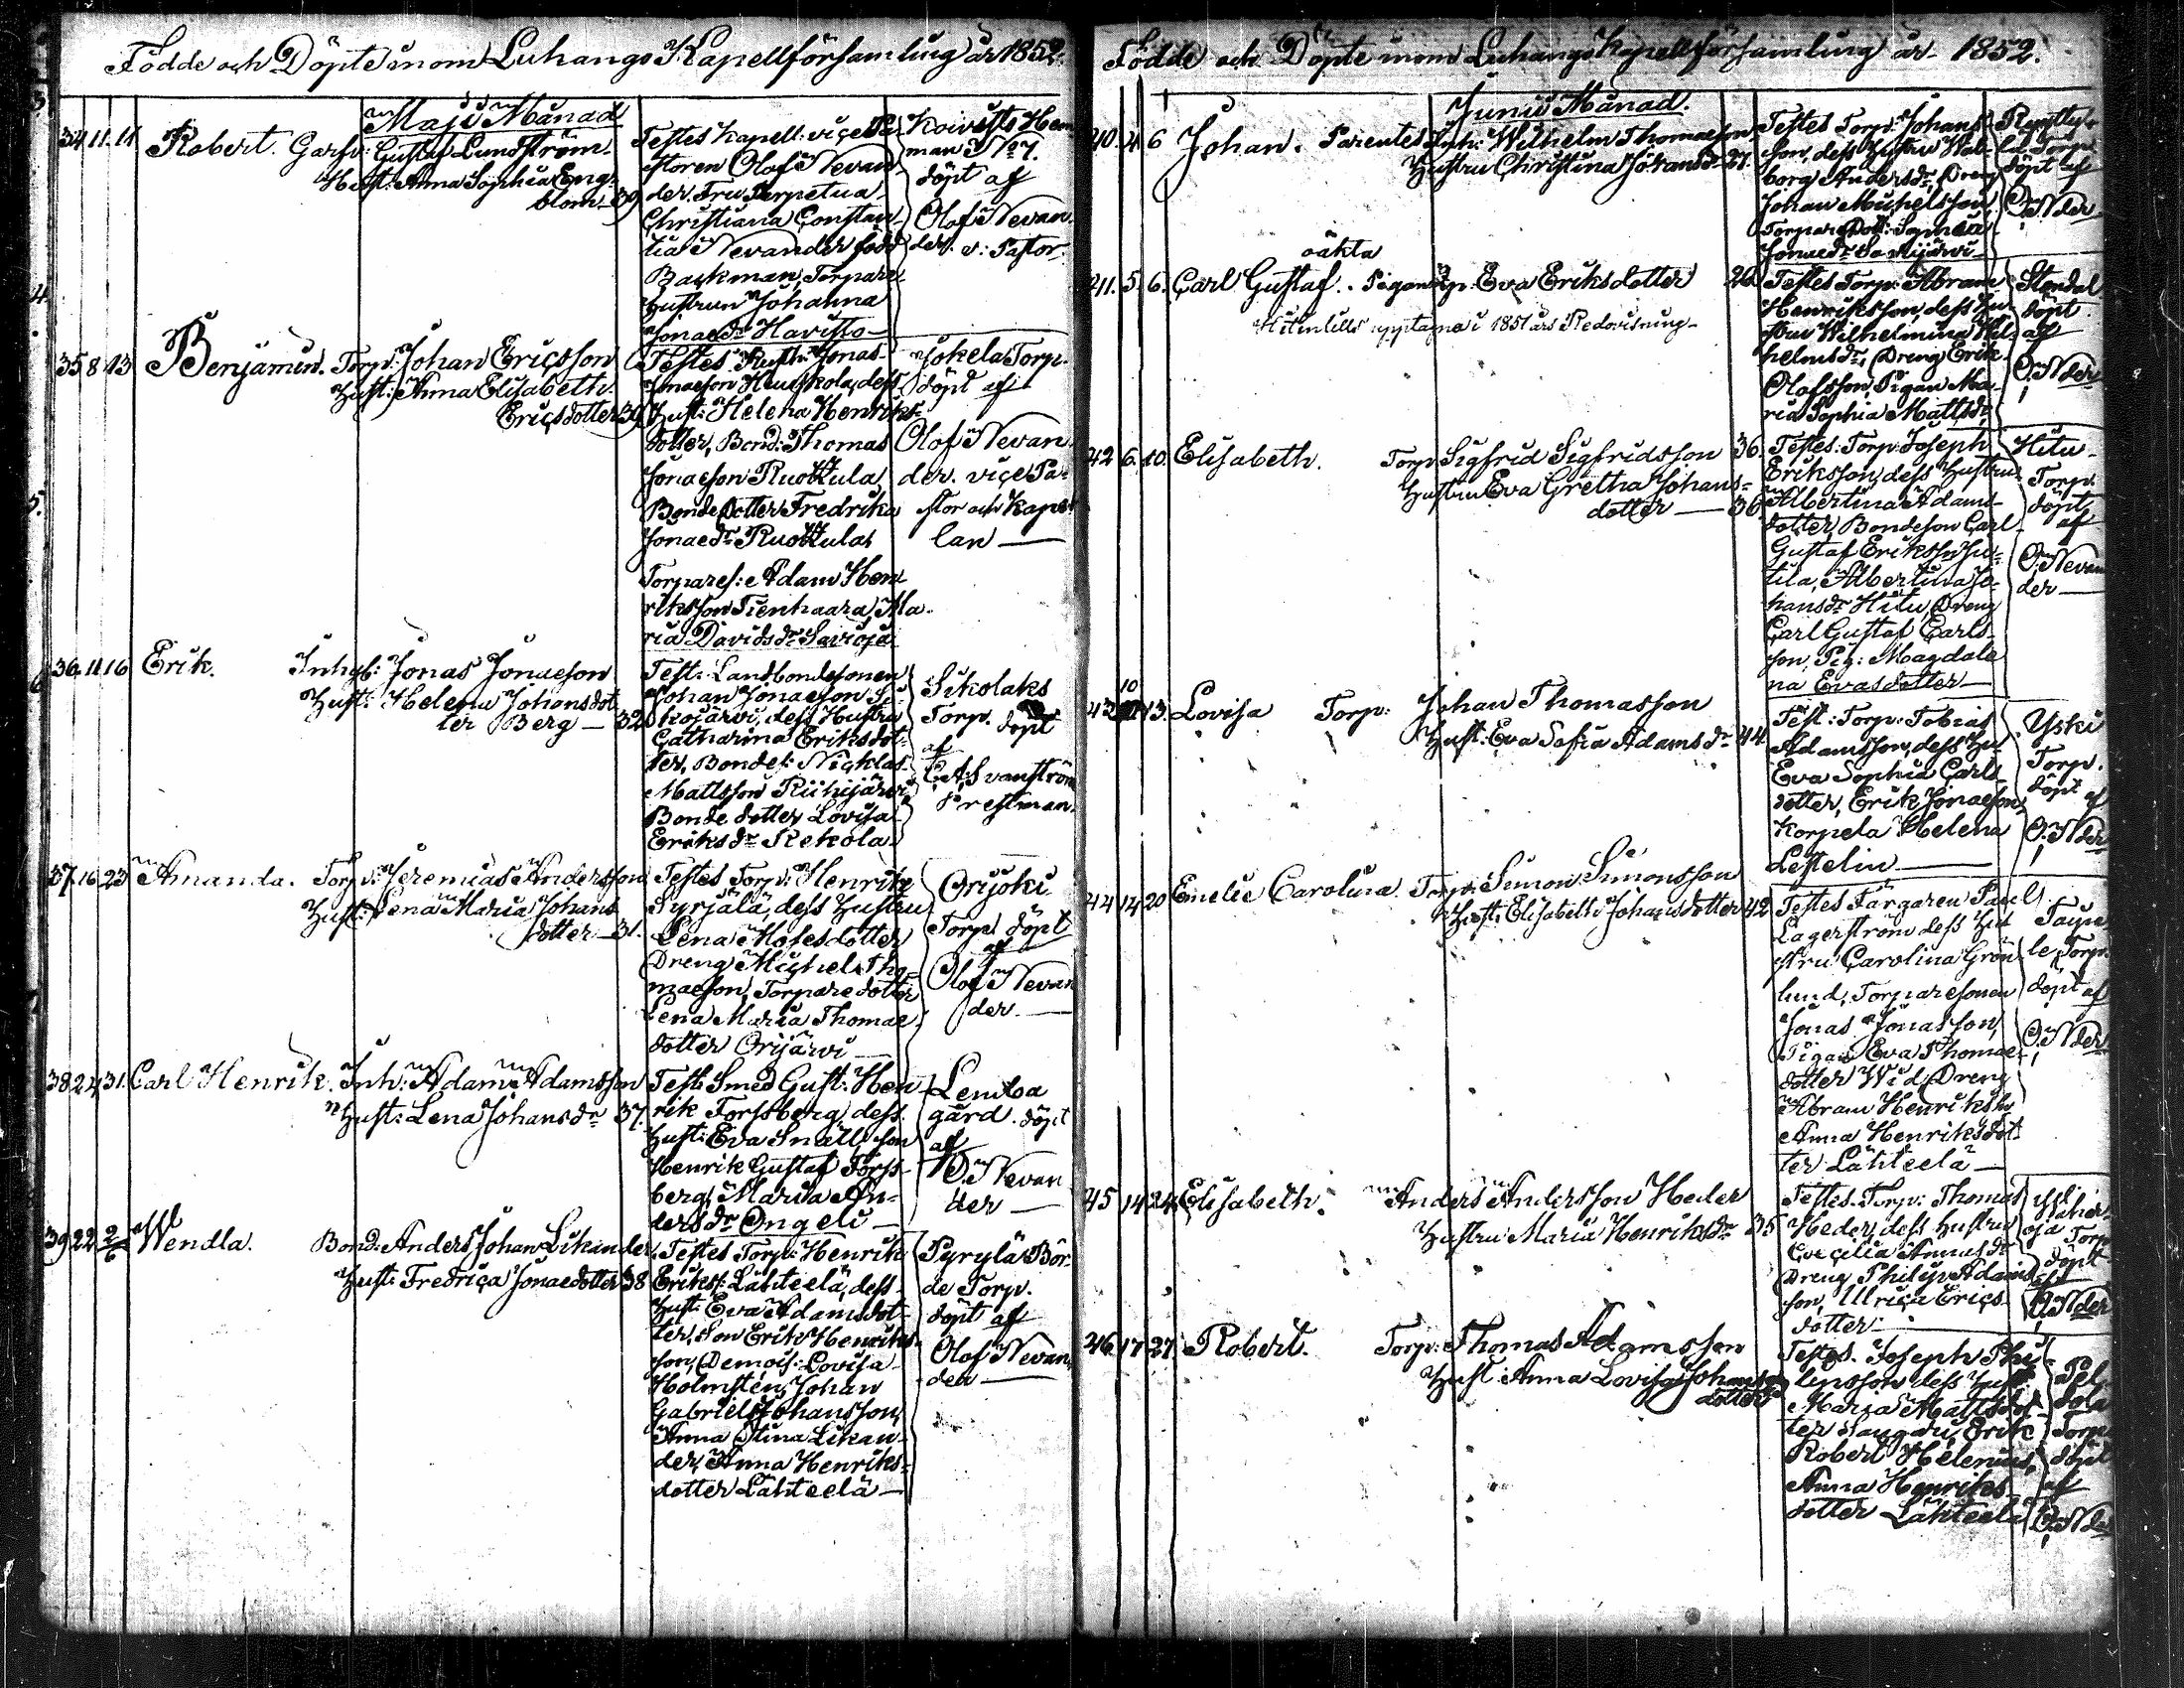 Födde och Döpte inom Luhango Kapellförsamling år 1852.
Maji Månad
34 11. 11 Robert. Garfv: Gustaf Lundström
Hust: Anna Sophia Eng-
blom 39
Testes Kapell: viçe Pa-
storen Olof Nevan-
der. Fru Perpetua
Christiana Constan-
tia Nevander född
Backman, Torpare
Hustrun Johanna
Jonaedr Havisto
Koivisto Hem
man No 7.
döpt af
Olof Nevan
der. v: Pastor.
35 8 13 Benjamin. Torp: Johan Ericsson
Hust: Anna Elisabeth
Ericsdotter 39
Testes Rusth: Jonas
Jonaesson dess
Hust: Helena Henriks-
dotter, Bond: Thomas
Jonaesson Ruottula
Bondedotter Fredrika
Jonaedr Ruottula
Torpares: Adam Hen
riksson Tienhaara, Ma-
ria Davidsdr Savioja
Jokela Torp.
döpt af
Olof Nevan
der. viçe Pa-
stor och Kapel
lan
36. 11 16 Erik. Inhys: Jonas Jonaeson
Hust: Helena Johansdot
ter Berg 32
Test: Landbondesonen
Johan Jonaeson
dess Hustru
Catharina Eriksdot-
ter, Bondes: Nicklas
Mattsson Riihijärvi
Bonde dotter Lovisa
Eriksdr Rekola
Sikolaks
Torp. döpt
af
Svanström
Prestman.
37. 16 23 Amanda. Torp: Jeremias Andersson
Hust: Lena Maria Johans
dotter 31.
Testes Torp: Henrik
Syrjälä, dess Hustru
Lena Mosesdotter
Dreng Michel Tho-
maeson, Torparedotter
Lena Maria Thomae
dotter Orijärvi
Orijoki
Torp döpt
af
Olof Nevan
der
38 24 31. Carl Henrik. Inh: Adam Adamsson
Hust: Lena Johansdr 37.
Test: Smed Gust: Hen
rik Forssberg, dess
Hust: Eva Snäll son
Henrik Gustaf Forss-
berg, Maria An-
dersdr Ongeli
gård. döpt
af
O. Nevan
der
39 22 2/6 Wendla. Bond: Anders Johan Likander
Hust: Fredriça Jonaedotter 38
Testes Torp: Henrik
Eriks: Lähteelä, dess
Hust: Eva Adamsdot-
ter, son Erik Henriks-
son, Demois: Lovisa
Holmsten, Johan
Gabriel Johansson,
Anna Stina Likan-
der, Anna Henriks-
dotter Lähteelä
Pyrylä Bön-
de Torp.
döpt af
Olof Nevan
der
Födde och Döpte inom Luhango Kapellförsamling år 1852.
Junii Månad.
40. 4 6 Johan. Parentes Inh: Wilhelm Thomaeson
Hustru Christina Johansdr 27.
Testes Torp: Johans
son, dess Hustru Wal-
borg Andersdr, Dreng
Johan Michelsson,
Torpare Dott: Sophia
Jonaedr
Torp
döpt af
O. Nder
oäkta
41. 5. 6. Carl Gustaf. Pigan Eva Eriksdotter 26
Hitintills upptagne i 1851 års Redovisning
Testes Torp: Abram
Henriksson, dess Hu-
stru Wilhelmina Wil-
helmsdr, Dreng Erik
Olofsson, Pigan Ma-
ria Sophia Mattsdr
Stendal
döpt
af
O. Nder
42 6. 10. Elisabeth. Torp Sigfrid Sigfridsson 36.
Hustru Eva Gretha Johans-
dotter 36
Testes: Torp: Joseph
Eriksson, dess Hustru
Albertina Adams-
dotter, Bondeson Carl
Gustaf Eriksson
Albertina Jo-
hansdr Hitu Dreng
Carl Gustaf Carls-
son, Pig: Magdale
na Evasdotter
Hitu
Torp.
döpt
af
O. Nevan
der
43 10 13. Lovisa Torp: Johan Thomasson
Hust: Eva Sofia Adamsdr 44
Test: Torp: Tobias
Adamsson, dess Hu
Eva Sophia Carls-
dotter, Erik Jonaeson
Korpela Helena
Lestelin
Yski
Torp.
döpt af
O. Nder
44 14 20 Emelie Carolina. Torp: Simon Simonsson
Hust: Elisabeth Johansdotter 42
Testes Färgaren Paul
Lagerström dess Hu
stru Carolina Grön
lund, Torparesonen
Jonas Jonasson,
Pigan Eva Thomae-
dotter Wid, Dreng
Abram Henriksson
Anna Henriksdot
ter Lähteelä
le Torp.
döpt af
O. Nder
45 14 24 Elisabeth. Anders Andersson Heder
Hustru Maria Henriksdr 35
Testes. Torp: Thomas
Heder, dess Hustru
Cecilia
Dreng Philip Adams-
son, Ulriça Erics-
dotter
oja Torp
döpt
af
O. Nder
46 17 27. Robert. Torp: Thomas Adamsson
Hust: Anna Lovisa Johans
dotter
Testes. Joseph Phi-
lipsson dess Hust
Maria Mattsdot-
ter Erik
Robert Helenius,
Anna Henriks-
dotter Lähteelä
Pel
dola
Torp
döpt
af
O. Nder